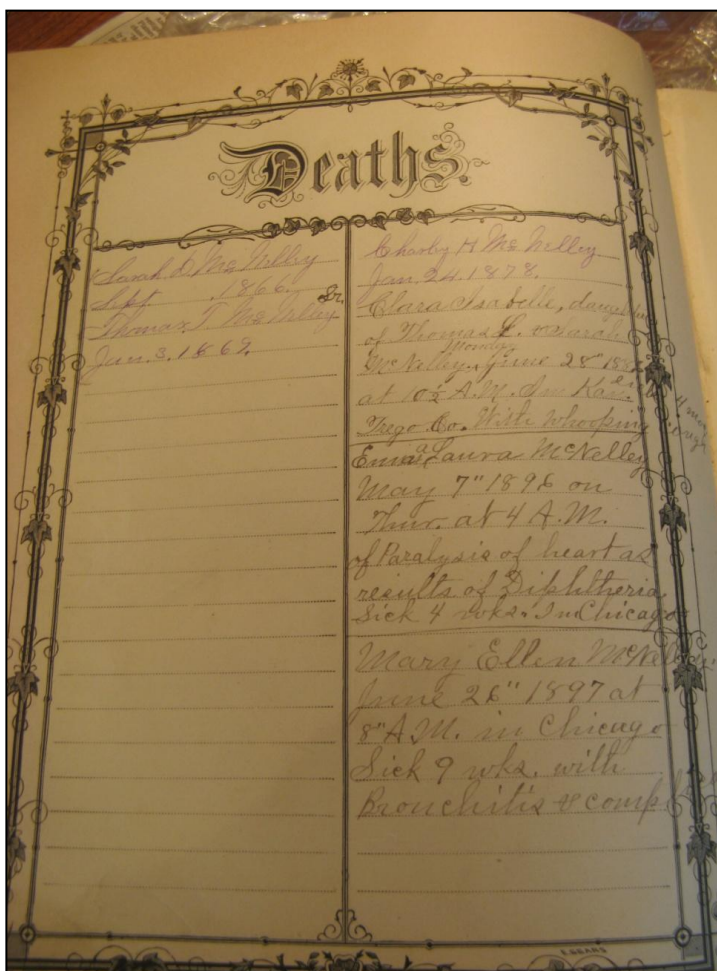 Deaths.
Sarah D. McNelley
Sept. 1866.
Sr.
Thomas T McNelley
Jan. 3. 1869.
Charley H McNelley
Jan. 24. 1878.
Clara Isabelle, daughter
of Thomas L. & Sarah
Monday
McNelley. June 28" 188
at 10½ A.M. In Kan.
Trego Co. With Whooping
Emma Laura McNelley
May 7" 1896 on
Thur. at 4 A.M.
of Paralysis of heart as
results of Diphtheria
Sick 4 wks. In Chicago
Mary Ellen McNelley
June 26" 1897 at
8" A.M. in Chicago
Sick 9 wks. with
Bronchitis & comp